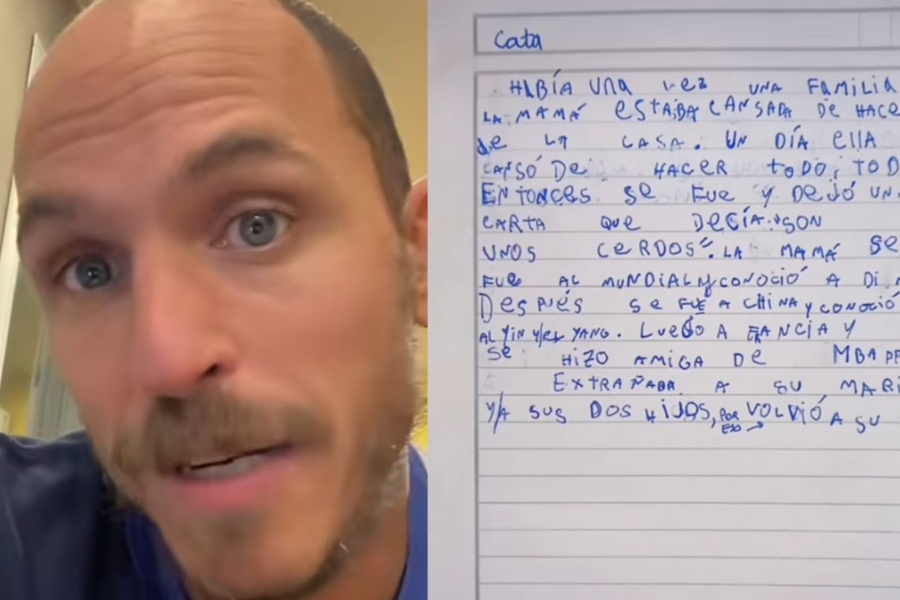 Cata
HABÍA UNA VEZ UNA FAMILIA
LA MAMÁ ESTABA CANSADA DE HACE
DE LA CASA. UN DÍA ELLA
CANSÓ DE HACER TODO, TOD
ENTONCES SE FUE Y DEJÓ UN
CARTA QUE DECÍA: "SON
UNOS CERDOS". LA MAMÁ SE
FUE AL MUNDIAL Y CONOCIÓ A DI
DESPUÉS SE FUE A CHINA Y CONOCIÓ
AL YIN Y/EL YANG. LUEGO A FANCIA Y
SE HIZO AMIGA DE MBAPP
EXTRAÑABA A SU MARI
Y/A SUS DOS HIJOS, POR ESO → VOLVIÓ A SU